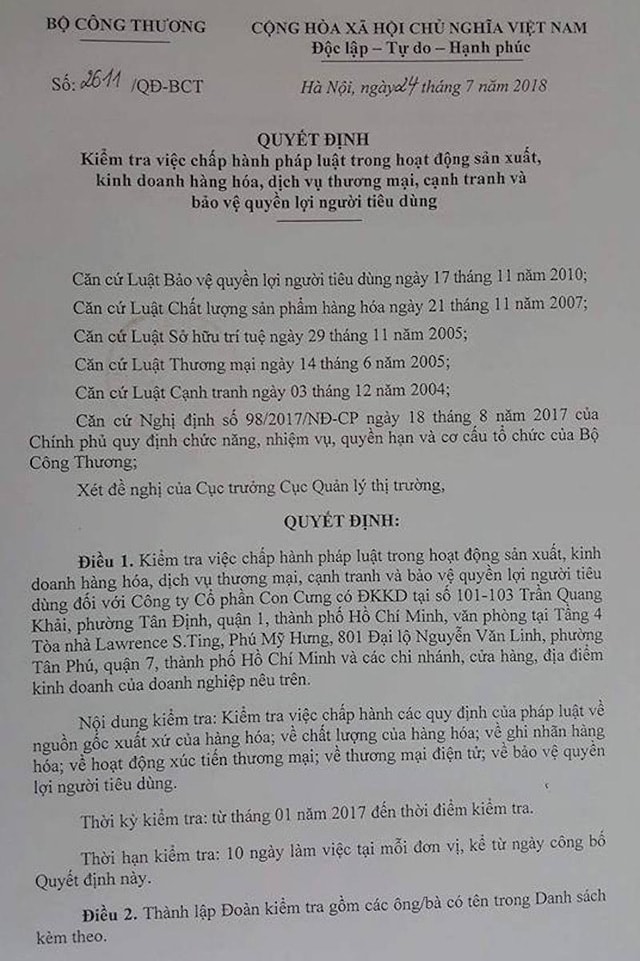 BỘ CÔNG THƯƠNG
CỘNG HÒA XÃ HỘI CHỦ NGHĨA VIỆT NAM
Độc lập – Tự do – Hạnh phúc
Số: 2611 /QĐ-BCT
Hà Nội, ngày 24 tháng 7 năm 2018
QUYẾT ĐỊNH
Kiểm tra việc chấp hành pháp luật trong hoạt động sản xuất,
kinh doanh hàng hóa, dịch vụ thương mại, cạnh tranh và
bảo vệ quyền lợi người tiêu dùng
Căn cứ Luật Bảo vệ quyền lợi người tiêu dùng ngày 17 tháng 11 năm 2010;
Căn cứ Luật Chất lượng sản phẩm hàng hóa ngày 21 tháng 11 năm 2007;
Căn cứ Luật Sở hữu trí tuệ ngày 29 tháng 11 năm 2005;
Căn cứ Luật Thương mại ngày 14 tháng 6 năm 2005;
Căn cứ Luật Cạnh tranh ngày 03 tháng 12 năm 2004;
Căn cứ Nghị định số 98/2017/NĐ-CP ngày 18 tháng 8 năm 2017 của
Chính phủ quy định chức năng, nhiệm vụ, quyền hạn và cơ cấu tổ chức của Bộ
Công Thương;
Xét đề nghị của Cục trưởng Cục Quản lý thị trường,
QUYẾT ĐỊNH:
Điều 1. Kiểm tra việc chấp hành pháp luật trong hoạt động sản xuất, kinh
doanh hàng hóa, dịch vụ thương mại, cạnh tranh và bảo vệ quyền lợi người tiêu
dùng đối với Công ty Cổ phần Con Cưng có ĐKKD tại số 101-103 Trần Quang
Khải, phường Tân Định, quận 1, thành phố Hồ Chí Minh, văn phòng tại Tầng 4
Tòa nhà Lawrence S.Ting, Phú Mỹ Hưng, 801 Đại lộ Nguyễn Văn Linh, phường
Tân Phú, quận 7, thành phố Hồ Chí Minh và các chi nhánh, cửa hàng, địa điểm
kinh doanh của doanh nghiệp nêu trên.
Nội dung kiểm tra: Kiểm tra việc chấp hành các quy định của pháp luật về
nguồn gốc xuất xứ của hàng hóa; về chất lượng của hàng hóa; về ghi nhãn hàng
hóa; về hoạt động xúc tiến thương mại; về thương mại điện tử; về bảo vệ quyền
lợi người tiêu dùng.
Thời kỳ kiểm tra: từ tháng 01 năm 2017 đến thời điểm kiểm tra.
Thời hạn kiểm tra: 10 ngày làm việc tại mỗi đơn vị, kể từ ngày công bố
Quyết định này.
Điều 2. Thành lập Đoàn kiểm tra gồm các ông/bà có tên trong Danh sách
kèm theo.